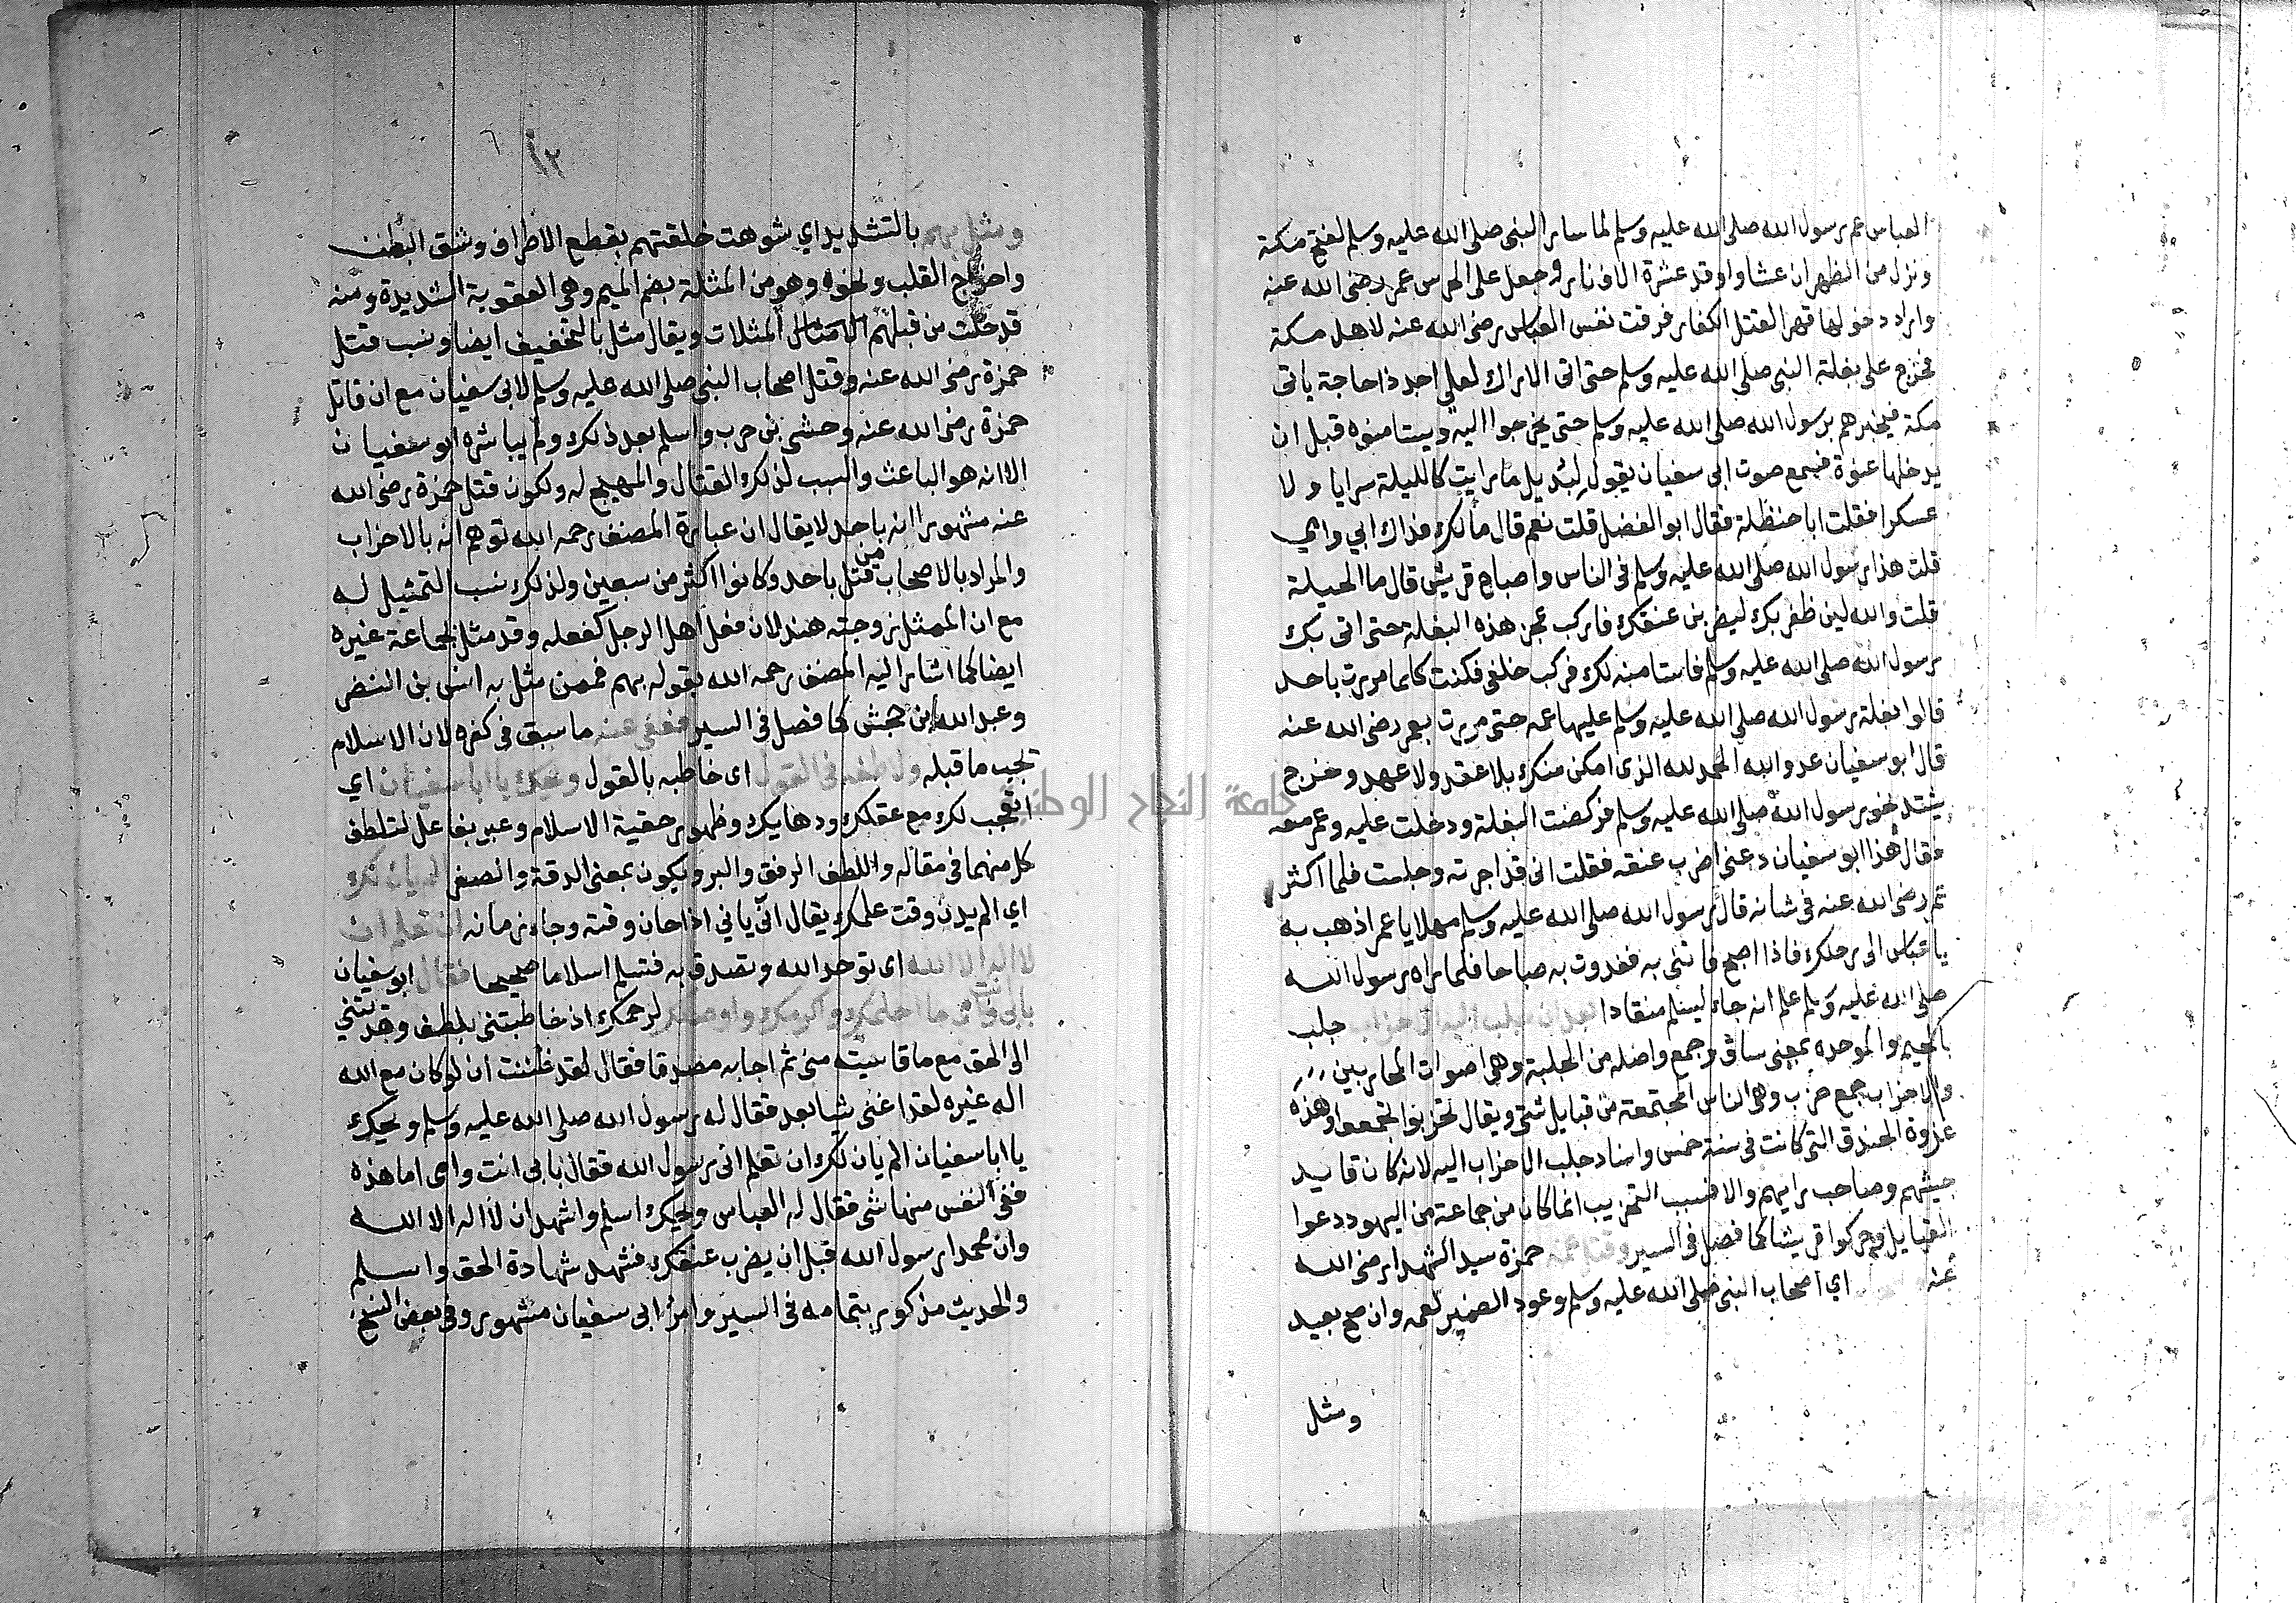 العباس عم رسول الله صلى الله عليه وسلم لما سار النبي صلى الله عليه وسلم لفتح مكة
ونزل من الظهران عشا واوقد عشرة الاف نار وجعل على الحرس عمر رضى الله عنه
واراد دخولها قهرا لقتل الكفار فرقت نفس العباس رضى الله عنه لاهل مكة
فخرج على بغلة النبي صلى الله عليه وسلم حتى اتى الاراك لعلى اجد ذا حاجة ياتى
مكة فيخبرهم برسول الله صلى الله عليه وسلم حتى يخرجوا اليه ويستامنوه قبل ان
يدخلها عنوة فسمع صوت ابى سفيان يقول لبُديل ما رايت كالليلة سرايا ولا
عسكرا فقلت ابا حنظلة فقال ابو الفضل قلت نعم قال مالك فداك ابي وامي
قلت هذا رسول الله صلى الله عليه وسلم فى الناس واصباح قريش قال ما الحيلة
قلت والله لين ظفر بك ليضربن عنقك فاركب عجز هذه البغلة حتى اتى بك
رسول الله صلى الله عليه وسلم فاستامنه لك فركب خلفى فكنت كلما مررت باحد
قالوا بغلة رسول الله صلى الله عليه وسلم عليها عمه حتى مررت بعمر رضى الله عنه
قال ابو سفيان عدو الله الحمد لله الذى امكن منك بلا عقد ولا عهد وخرج
يشتد نحو رسول الله صلى الله عليه وسلم فركضت البغلة ودخلت عليه وعمر معه
فقال هذا ابو سفيان دعنى اضرب عنقه فقلت انى قد اجرته وجلست فلما اكثر
عمر رضى الله عنه فى شانه قال رسول الله صلى الله عليه وسلم مهلا يا عمر اذهب به
يا عباس الى رحلك فاذا اصبح فاتنى به فغدوت به صباحا فلما راه رسول الله
صلى الله عليه وسلم علم انه جاء ليسلم منقادا بعد ان جلب اليه الاحزاب جلب
بالجيم والموحده بمعنى ساق وجمع واصله من الجلبة وهى اصوات المحاربين
والاحزاب جمع حزب وهى الناس المجتمعة من قبايل شتى ويقال تحزبوا تجمعوا وهذه
غزوة الخندق التى كانت فى سنة خمس واسناد جلب الاحزاب اليه لانه كان قايد
جيشهم وصاحب رايهم والا فسبب التحزيب انما كان من جماعة من اليهود دعوا
القبايل وحركوا قريشا كما فصل فى السير وقتل عمه حمزة سيد الشهدا رضى الله
عنه اي اصحاب النبي صلى الله عليه وسلم وعود الضمير لعمه وان صح بعيد
ومثل
١٢
ومثل بهم بالتشديد اي شوهت خلقتهم بقطع الاطراف وشق البطن
واخراج القلب ونحوه وهو من المثلة بضم الميم وهى العقوبة الشديدة ومنه
قد خلت من قبلهم المثلات ويقال مثل بالتخفيف ايضا ونسب قتل
حمزة رضى الله عنه وقتل اصحاب النبي صلى الله عليه وسلم لابى سفيان مع ان قاتل
حمزة رضى الله عنه وحشى بن حرب واسلم بعد ذلك ولم يباشره ابو سفيان
الا انه هو الباعث والسبب لذلك القتال والمهيج له ولكون قتل حمزة رضى الله
عنه مشهورا انه باحد لا يقال ان عبارة المصنف رحمه الله توهم انه بالاحزاب
والمراد بالاصحاب من قتل باحد وكانوا اكثر من سبعين ولذلك نسب التمثيل له
مع ان الممثل زوجته هند لان فعل اهل الرجل كفعله وقد مثل بجماعة غيره
ايضا كما اشار اليه المصنف رحمه الله بقوله بهم فممن مثل به انس بن النضر
وعبد الله بن جحش كما فصل فى السير فعفى عنه ما سبق فى كفره لان الاسلام
يجب ما قبله ولاطفه فى القول اى خاطبه بالقول ويحك يا ابا سفيان اي
اتعجب لك مع عقلك ودهايك وظهور حقية الاسلام وعبر بفاعل لتلطف
كل منهما فى مقاله واللطف الرفق والبر ويكون بمعنى الدقة والصغر الم يان لك
اي الم يدن وقت علمك يقال انى ياني اذا حان وقته وجاء زمانه ان تعلم ان
لا اله الا الله اى توحد الله وتصدق به فتسلم اسلاما صحيحا فقال ابو سفيان
بابى انت وامى ما احلمك واكرمك واوصلك لرحمك اذ خاطبتنى بلطف وهديتنى
الى الحق مع ما قاسيته منى ثم اجابه مصدقا فقال لقد ظننت ان لو كان مع الله
اله غيره لقد اغنى شيا بعد فقال له رسول الله صلى الله عليه وسلم ويحك
يا ابا سفيان الم يان لك ان تعلم انى رسول الله فقال بابى انت وامى اما هذه
ففى النفس منها شى فقال له العباس ويحك اسلم واشهد ان لا اله الا الله
وان محمدا رسول الله قبل ان يضرب عنقك فشهد شهادة الحق واسلم
والحديث مذكور بتمامه فى السير وامر ابى سفيان مشهور وفى بعض النسخ
جامعة النجاح الوطنية